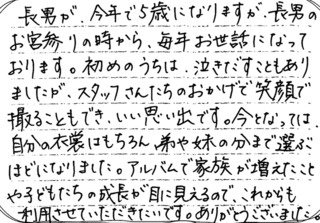 長男が、今年で5歳になりますが、長男の
お宮参りの時から、毎年お世話になって
おります。初めのうちは、泣きだすこともあり
ましたが、スタッフさんたちのおかげで笑顔で
撮ることもでき、いい思い出です。今となっては、
自分の衣裳はもちろん、弟や妹の分まで選ぶ
ほどになりました。アルバムで家族が増えたこと
や子どもたちの成長が目に見えるので、これからも
利用させていただきたいです。ありがとうございました